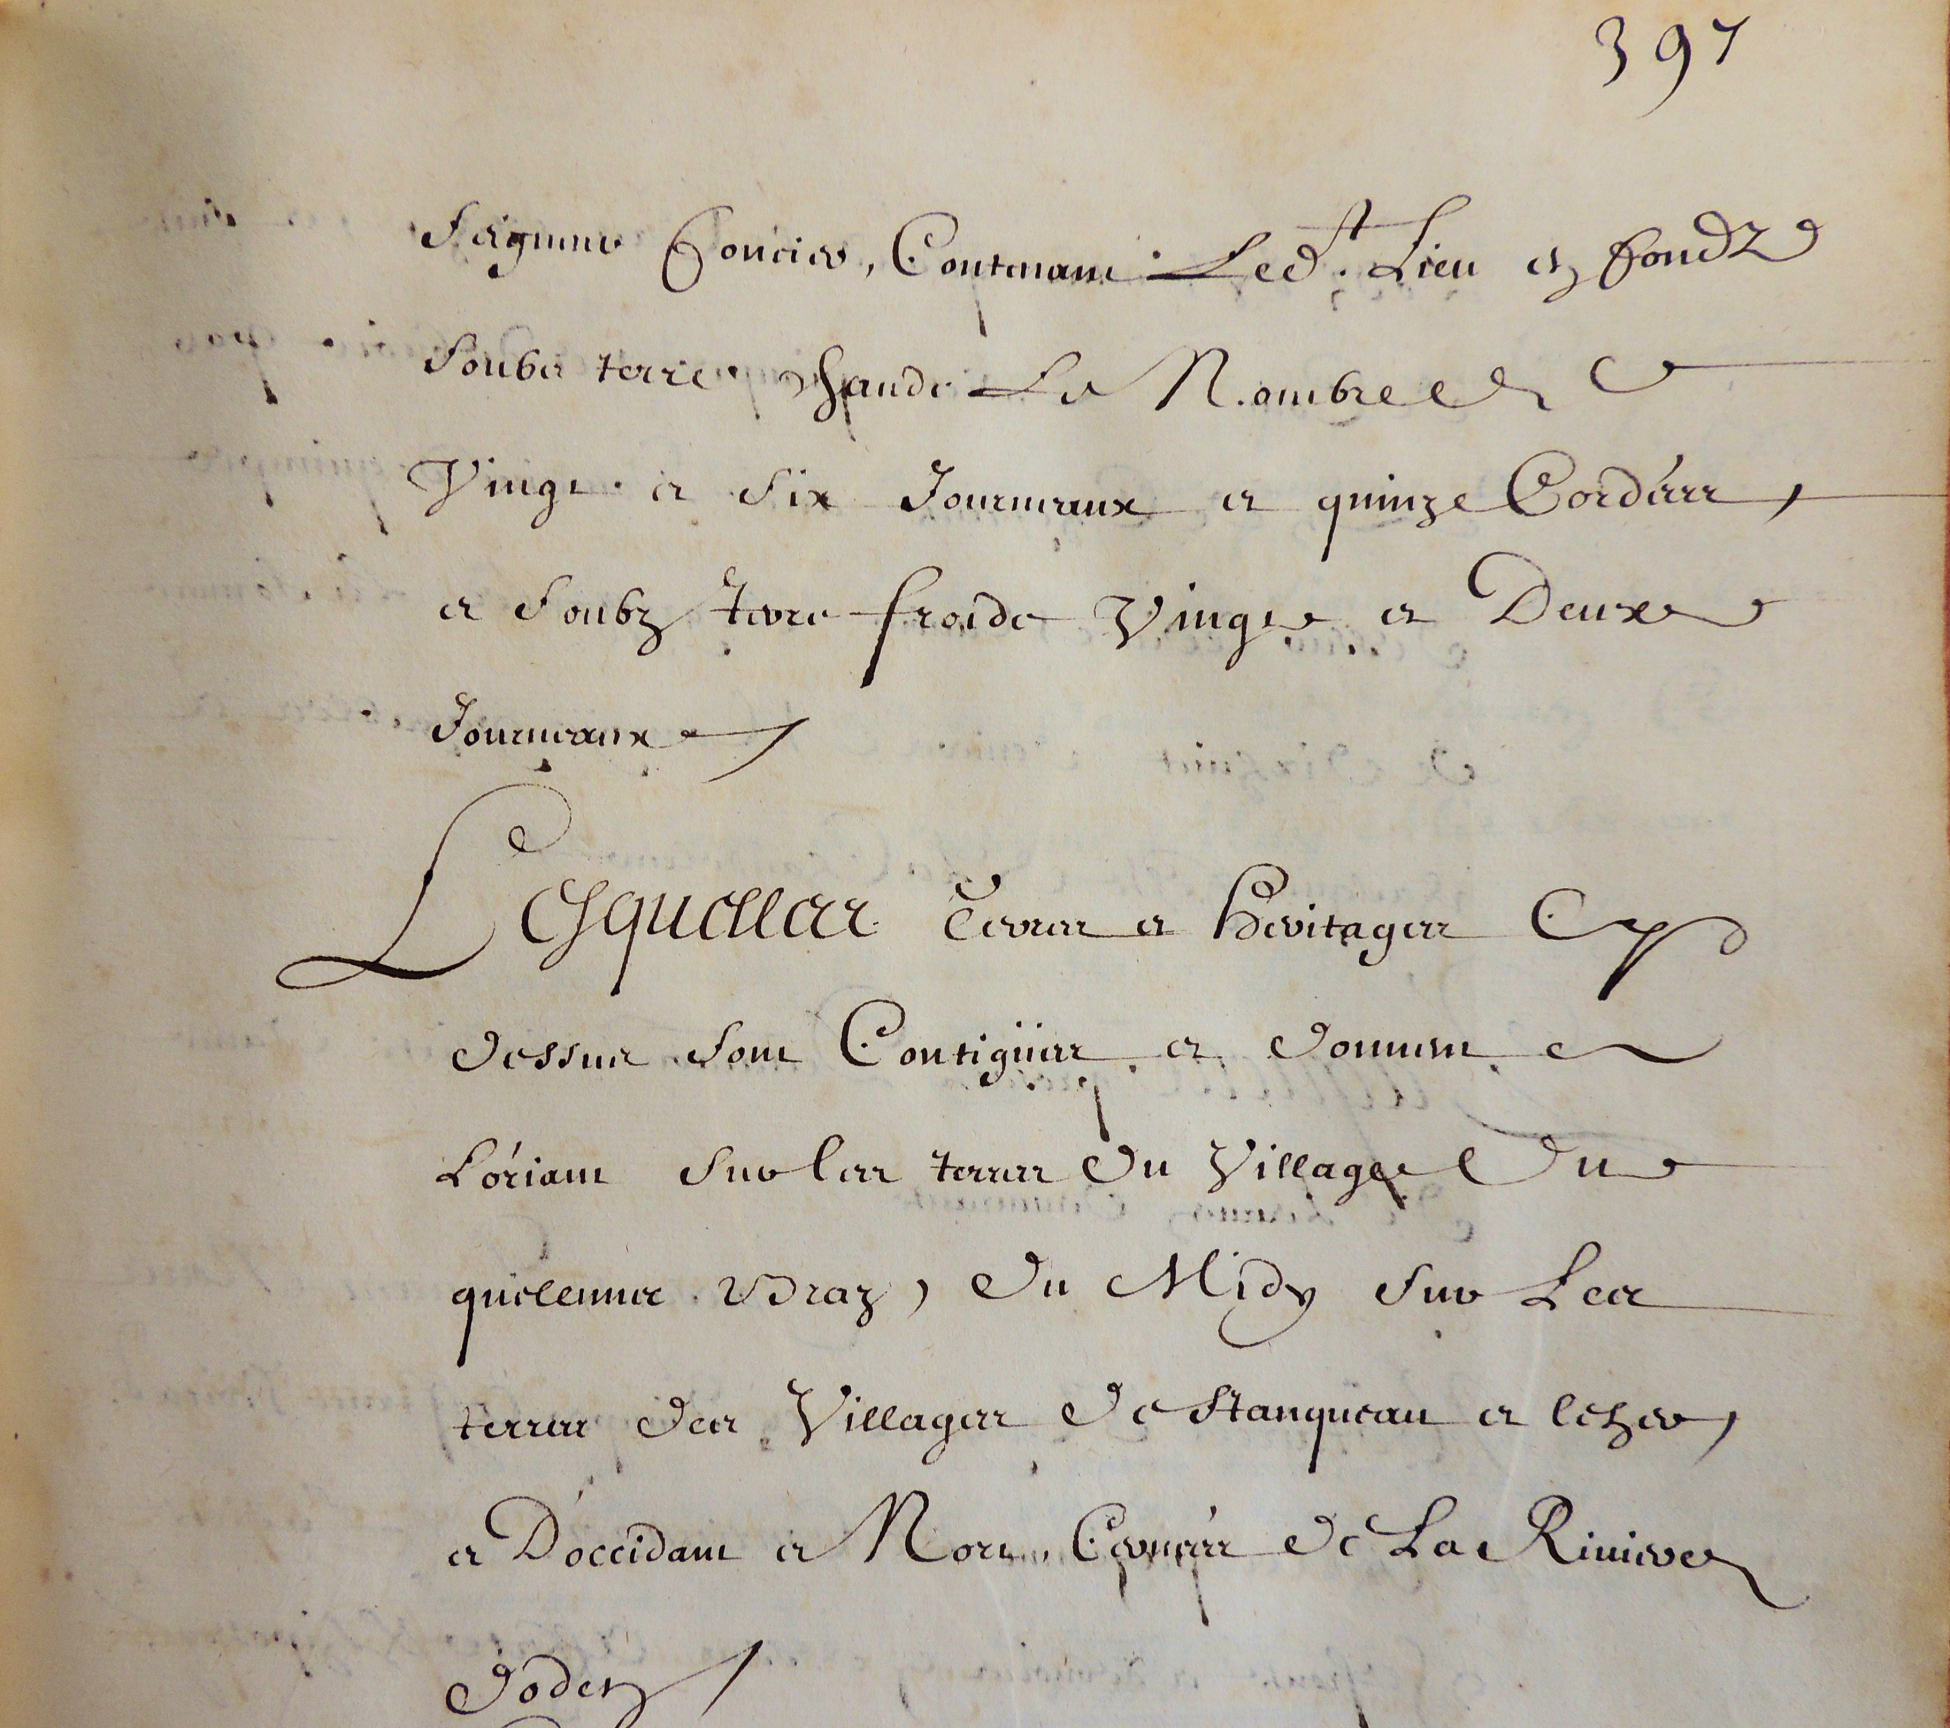 397
Seigneur foncier, Contenant Led.t Lieu en fondz
Soubz terre chaude Le Nombre de
Vingt et Six Journeaux et quinze Cordées,
et Soubz terre froide Vingt et Deux
Journeaux
Lesquelles Terres et Heritages Cy
dessus Sont Contigües et donnent e
L'oriant Sur les terres du Village du
quellennec Vraz, du Midy Sur Les
terres des Villages de Stanqueau et lezer,
et D'occidant et Nort Cernées de La Riviere
d'odet